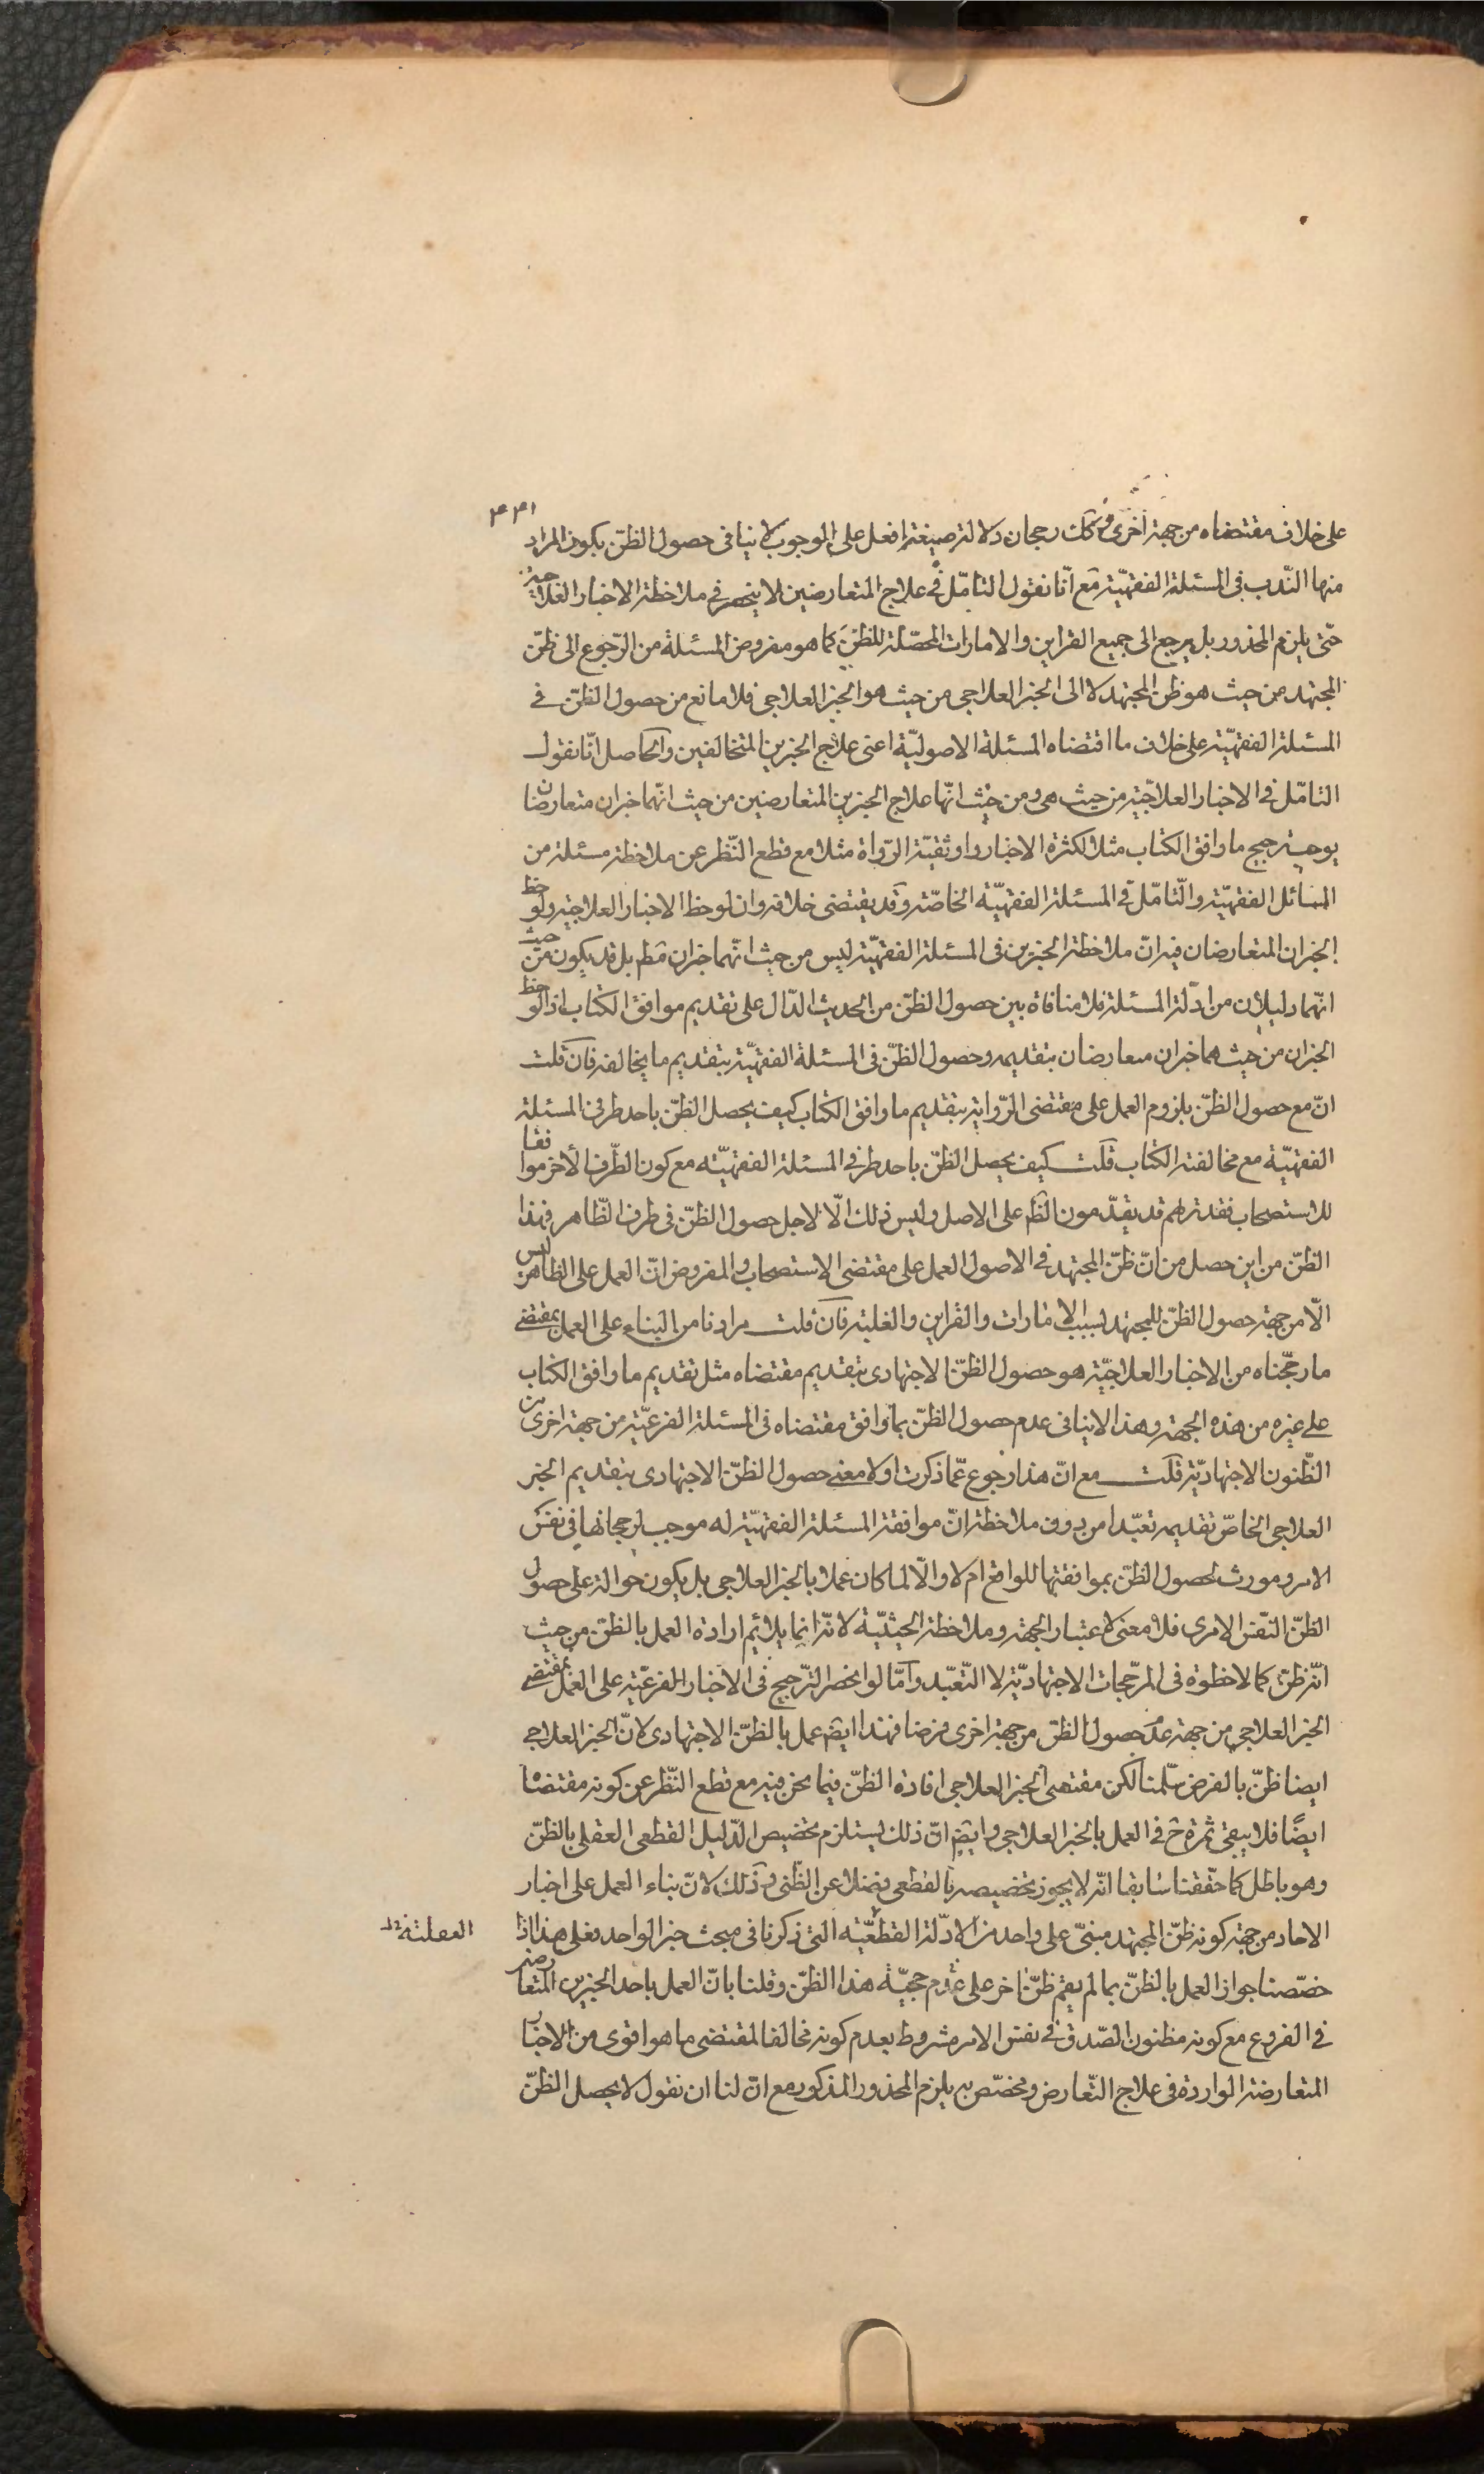 ٤٣١
على خلاف مقتضاه من جهة اخرى وكك رجحان دلالة صيغة افعل على الوجوب لا ينافى حصول الظنّ بكون المراد
منها النّدب فى المسئلة الفقهيّة مع انّا نقول التامّل فى علاج المتعارضين لا ينحصر فى ملاحظة الاخبار العلاجيّة
حتّى يلزم المحذور بل يرجع الى جميع القراين والامارات المحصّلة للظنّ كما هو مفروض المسئلة من الرّجوع الى ظنّ
المجتهد من حيث هو ظن المجتهد لا الى الخبر العلاجى من حيث هو الخبر العلاجى فلا مانع من حصول الظنّ فى
المسئلة الفقهيّة على خلاف ما اقتضاه المسئلة الاصوليّة اعنى علاج الخبرين المتخالفين والحاصل انّا نقول
التامّل فى الاخبار العلاجيّة من حيث هى ومن حيث انّها علاج الخبرين المتعارضين من حيث انّهما خبران متعارضان
يوجب ترجيح ما وافق الكتاب مثلا لكثرة الاخبار واوثقيّة الرّواة مثلا مع قطع النّظر عن ملاحظة مسئلة من
المسائل الفقهيّة والتّامّل فى المسئلة الفقهيّة الخاصّة وقد يقتضى خلافه وان لوحظ الاخبار العلاجيّة ولوحظ
الخبران المتعارضان فيه انّ ملاحظة الخبرين فى المسئلة الفقهيّة ليس من حيث انّهما خبران فقط بل قد يكون من حيث
انّهما دليلان من ادلّة المسئلة فلا منافاة بين حصول الظنّ من الحديث الدّال على تقديم موافق الكتاب اذا لوحظ
الخبران من حيث هما خبران معارضان بتقديمه وحصول الظنّ فى المسئلة الفقهيّة بتقديم ما يخالفه فان قلت
انّ مع حصول الظنّ بلزوم العمل على مقتضى الرّواية بتقديم ما وافق الكتاب كيف يحصل الظنّ باحد طرفى المسئلة
الفقهيّة مع مخالفته الكتاب قلت كيف يحصل الظنّ باحد طرفى المسئلة الفقهيّة مع كون الطّرف الاخر موافقا
للاستصحاب فقد تريهم قد يقدّمون الظم على الاصل وليس ذلك الّا لاجل حصول الظنّ فى طرف الظّاهر فهذا
الظنّ من اين حصل من انّ ظنّ المجتهد فى الاصول العمل على مقتضى الاستصحاب والمفروض انّ العمل على الظاهر ليس
الّا من جهة حصول الظنّ للمجتهد بسبب الامارات والقراين والغلبة فان قلت مرادنا من البناء على العمل بمقتضى
ما رجّحناه من الاخبار العلاجيّة هو حصول الظنّ الاجتهادى بتقديم مقتضاه مثل تقديم ما وافق الكتاب
على غيره من هذه الجهة وهذا لا ينافى عدم حصول الظنّ بما وافق مقتضاه فى المسئلة الفرعيّة من جهة اخرى من
الظّنون الاجتهاديّة قلت مع انّ هذا رجوع عمّا ذكرت اولا معنى حصول الظنّ الاجتهادى بتقديم الخبر
العلاجى الخاصّ تقديمه تعبّدا من دون ملاحظة انّ موافقة المسئلة الفقهيّة له موجب لرجحانها فى نفس
الامر ومورث لحصول الظنّ بموافقتها للواقع ام لا والّا لما كان عملا بالخبر العلاجى بل يكون حوالة على حصول
الظنّ النّفس الامرى فلا معنى لاعتبار الجهة وملاحظة الحيثيّة لانّه انّما يلائم ارادة العمل بالظنّ من حيث
انّه ظنّ كما لاحظوه فى المرجّحات الاجتهاديّة لا التّعبّد وامّا لو انحصر التّرجيح فى الاخبار الفرعيّة على العمل بمقتضى
الخبر العلاجى من جهة عدم حصول الظنّ من جهة اخرى فرضا فهذا ايضا عمل بالظنّ الاجتهادى لانّ الخبر العلاجى
ايضا ظنّ بالفرض سلّمنا لكن مقتضى الخبر العلاجى افادة الظنّ فيما نحن فيه مع قطع النّظر عن كونه مقتضاه
ايضًا فلا يبقى ثمرة ح فى العمل بالخبر العلاجى وايضا انّ ذلك يستلزم تخصيص الدّليل القطعى العقلى بالظنّ
وهو باطل كما حقّقنا سابقا انّه لا يجوز تخصيصه بالقطعى فضلا عن الظّنى وذلك لانّ بناء العمل على اخبار
الاحاد من جهة كونه ظنّ المجتهد مبنىّ على واحد من الادلّة القطعيّة التى ذكرنا فى مبحث خبر الواحد فعلى هذا اذا
خصّصنا جواز العمل بالظنّ بما لم يقم ظنّ اخر على عدم حجيّة هذا الظنّ وقلنا بانّ العمل باحد الخبرين المتعارضين
فى الفروع مع كونه مظنون الصّدق فى نفس الامر مشروط بعدم كونه مخالفا لمقتضى ما هو اقوى من الاخبار
المتعارضة الواردة فى علاج التّعارض ومخصّص به يلزم المحذور المذكور مع انّ لنا ان نقول لا يحصل الظنّ